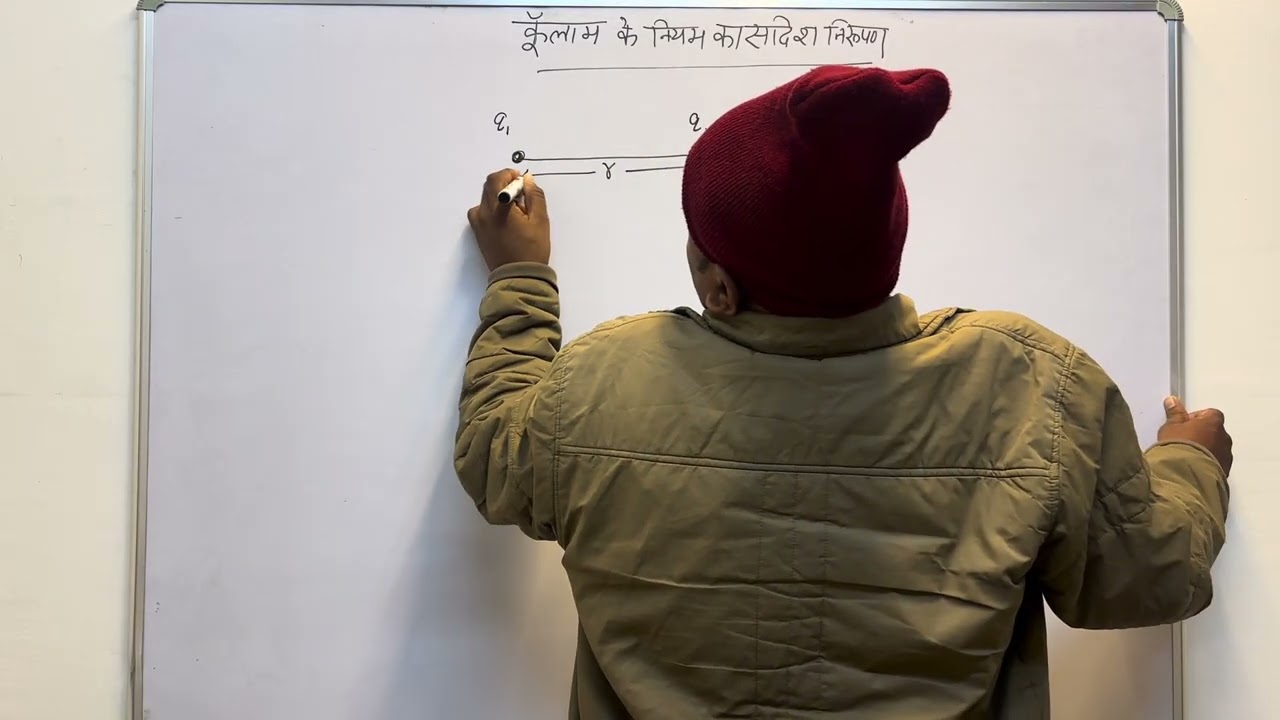 कूँलाम के नियम का सदिश निरूपण
q₁ q
r